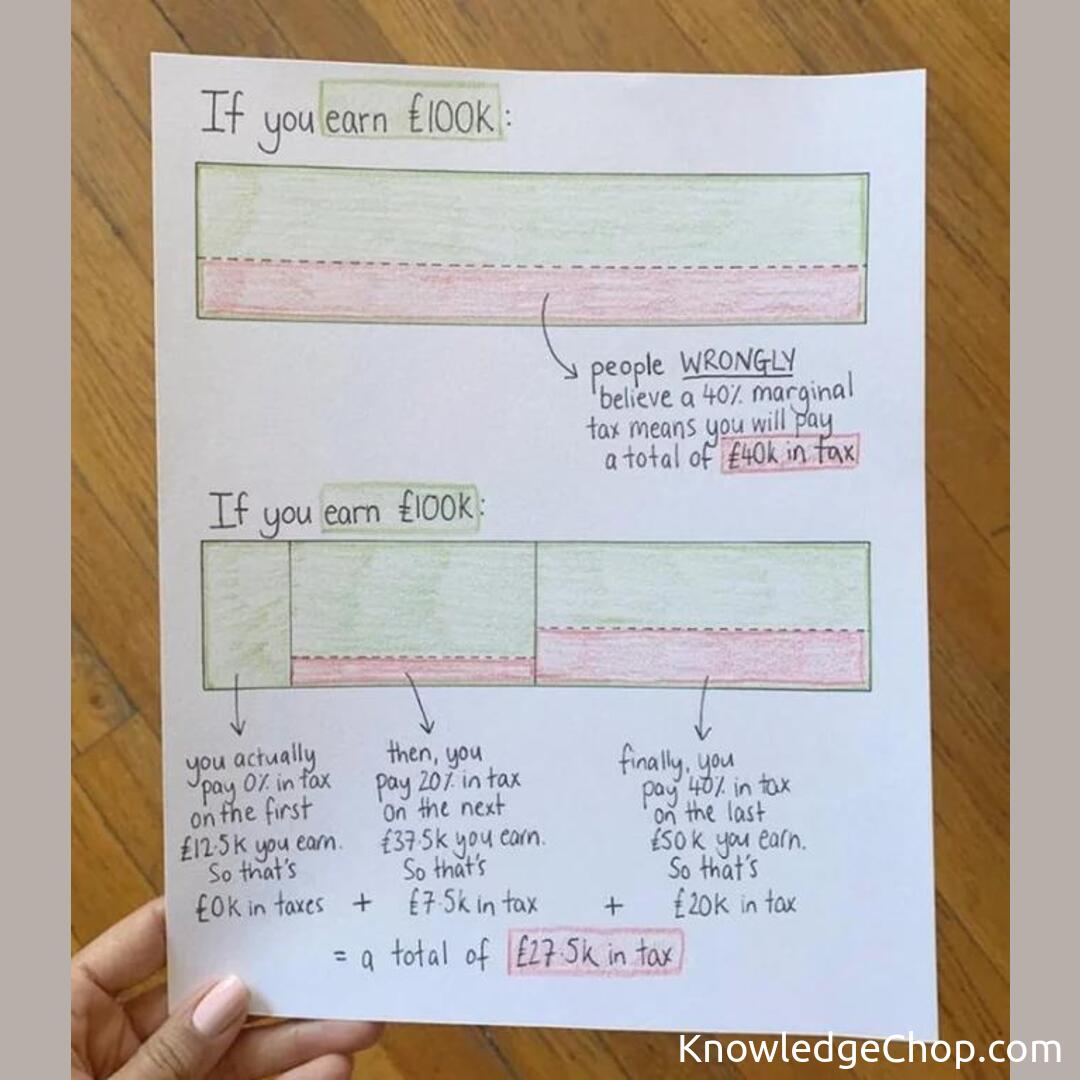 If you earn £100k:
people WRONGLY
believe a 40% marginal
tax means you will pay
a total of £40k in tax
If you earn £100k:
you actually
pay 0% in tax
on the first
£12.5k you earn.
So that's
£0k in taxes
then, you
pay 20% in tax
on the next
£37.5k you earn.
So that's
+ £7.5k in tax
finally, you
pay 40% in tax
on the last
£50k you earn.
So that's
+ £20k in tax
= a total of £27.5k in tax
KnowledgeChop.com